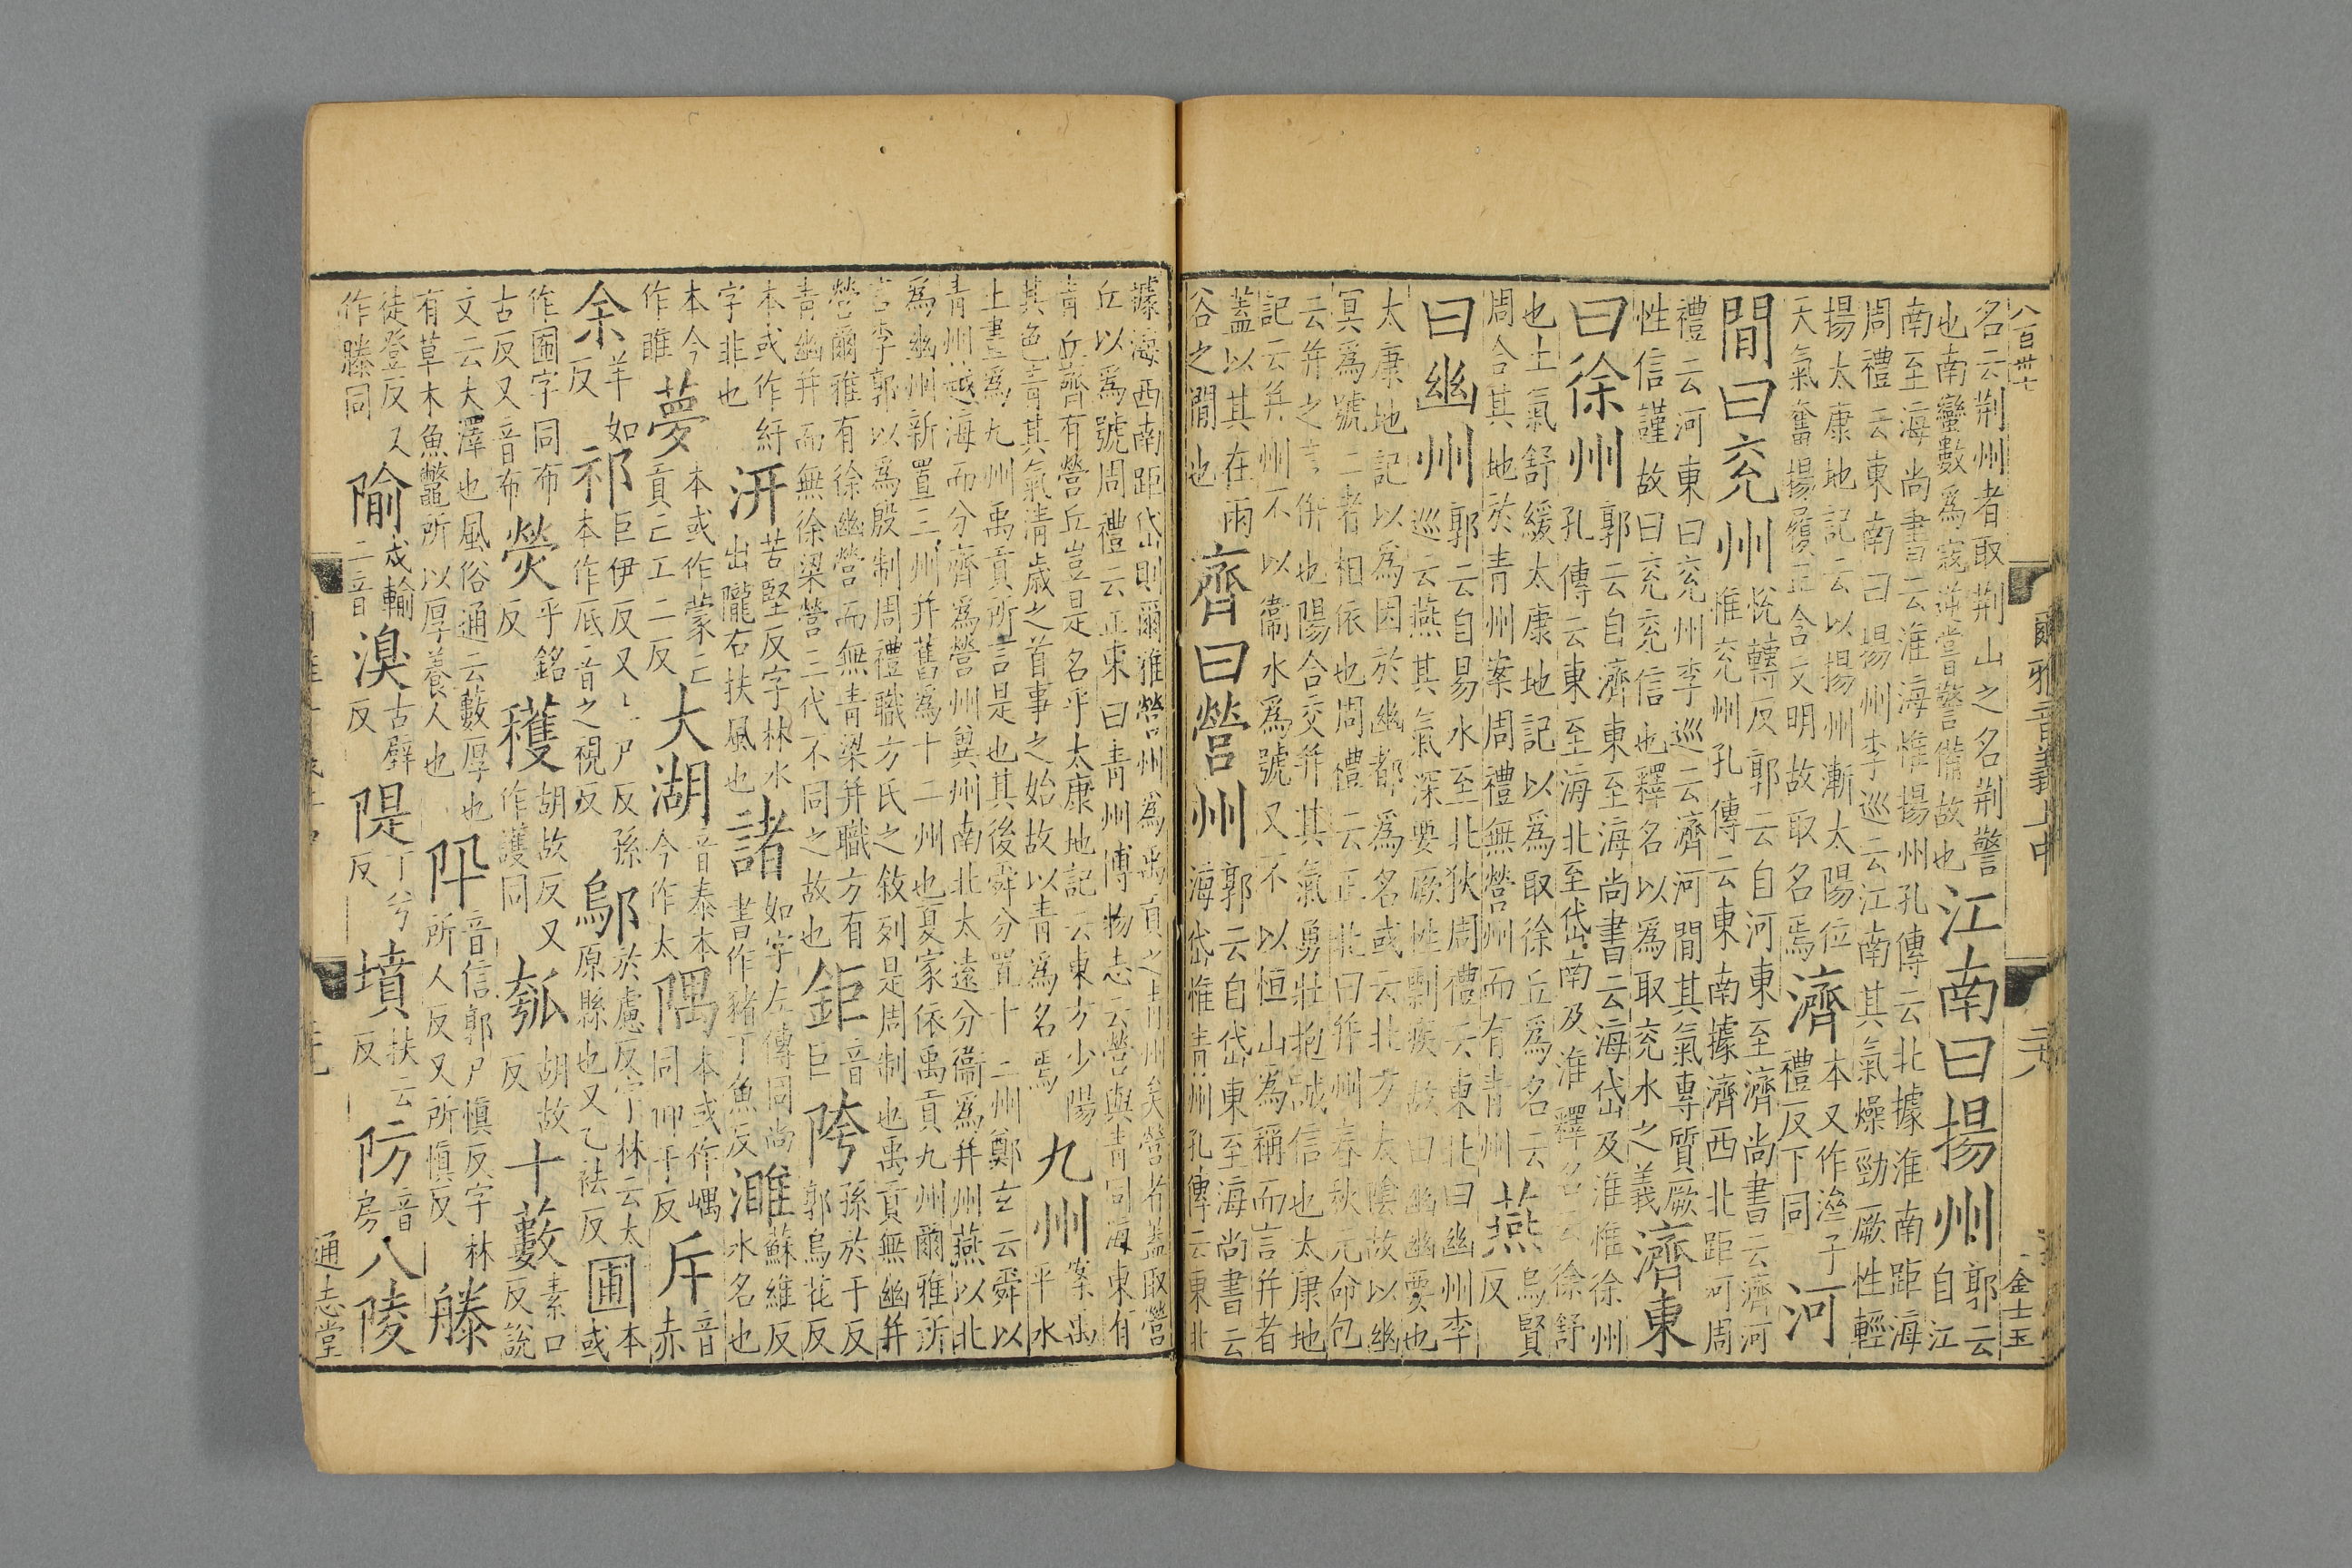 八百卅七
爾雅音義上中
金士玉
名云荆州者取荆山之名荆警
也南蠻數爲寇逆嘗警備故也
江南曰揚州
郭云
自江
南至海尚書云淮海惟揚州孔傳云北據淮南距海
周禮云東南曰揚州李巡云江南其氣燥勁厥性輕
揚太康地記云以揚州漸太陽位
天氣奮揚履正含文明故取名焉
濟
本又作泲子
禮反下同
河
間曰兖州
恱轉反郭云自河東至濟尚書云濟河
惟兖州孔傳云東南據濟西北距河周
禮云河東曰兖州李巡云濟河間其氣專質厥
性信謹故曰兖兖信也釋名以爲取兖水之義
濟東
曰徐州
郭云自濟東至海尚書云海岱及淮惟徐州
孔傳云東至海北至岱南及淮釋名云徐舒
也土氣舒緩太康地記以爲取徐丘爲名云
周合其地於青州案周禮無營州而有青州
燕
烏賢
反
曰幽州
郭云自易水至北狄周禮云東北曰幽州李
巡云燕其氣深要厥性剽疾故曰幽幽要也
太康地記以爲因於幽都爲名或云北方太陰故以幽
冥爲號二者相依也周禮云正北曰并州春秋元命包
云并之言併也陽合交并其氣勇壯抱誠信也太康地
記云并州不以衞水爲號又不以恒山爲稱而言并者
蓋以其在兩
谷之間也
齊曰營州
郭云自岱東至海尚書云
海岱惟青州孔傳云東北
據海西南距岱則爾雅營州爲禹貢之青州矣營者蓋取營
丘以爲號周禮云正東曰青州博物志云營與青同海東有
青丘齊有營丘豈是名乎太康地記云東方少陽
其色青其氣清歲之首事之始故以青爲名焉
九州
案禹
平水
土畫爲九州禹貢所言是也其後舜分置十二州鄭玄云舜以
青州越海而分齊爲營州冀州南北太遠分衞爲并州燕以北
爲幽州新置三州并舊爲十二州也夏家依禹貢九州爾雅所
言李郭以爲殷制周禮職方氏之敘列是周制也禹貢無幽并
營爾雅有徐幽營而無青梁并職方有
青幽并而無徐梁營三代不同之故也
鉅
音
巨
陓
孫於于反
郭烏花反
本或作紆
字非也
汧
苦堅反字林水
出隴右扶風也
諸
如字左傳同尚
書作猪丁魚反
濉
蘇維反
水名也
本今
作雎
夢
本或作蒙亡
貢亡工二反
大湖
音泰本
今作太
隅
本或作嵎
同
斥
音
赤
余
羊如
反
祁
巨伊反又尸反孫
本作厎音之視反
鄔
於慮反字林云太
原縣也又乙袪反
圃
本
或
作囿字同布
古反又音布
熒
乎銘
反
穫
胡故反又
作護同
瓠
胡故
反
十藪
素口
反說
文云大澤也風俗通云藪厚也
有草木魚鼈所以厚養人也
阠
音信郭尸愼反字林
所人反又所愼反
滕
徒登反又
作縢同
隃
戍輸
二音
湨
古壁
反
隄
丁兮
反
墳
扶云
反
防
音
房
八陵
通志堂